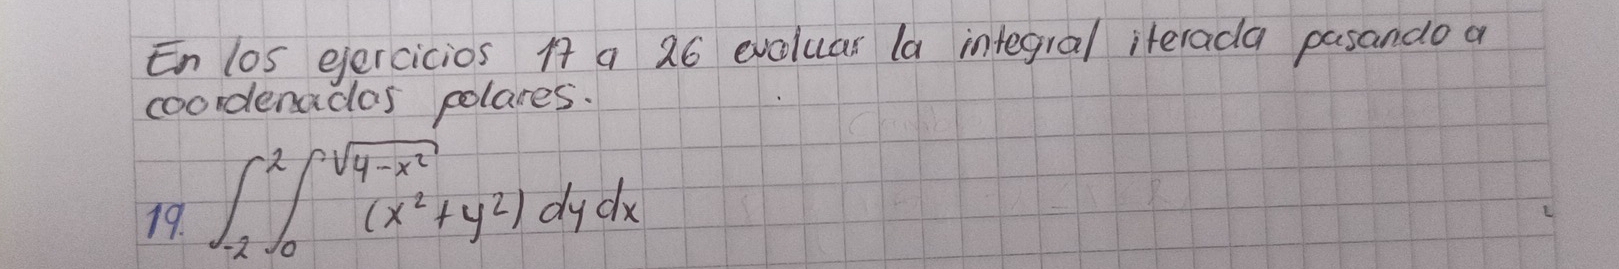 En los ejercicios 17 a 26 evaluar la integral iterada pasando a
coordenadas polares.
19. ∫_{-2}^{2} ∫_{0}^{√(4-x²)} (x²+y²) dy dx